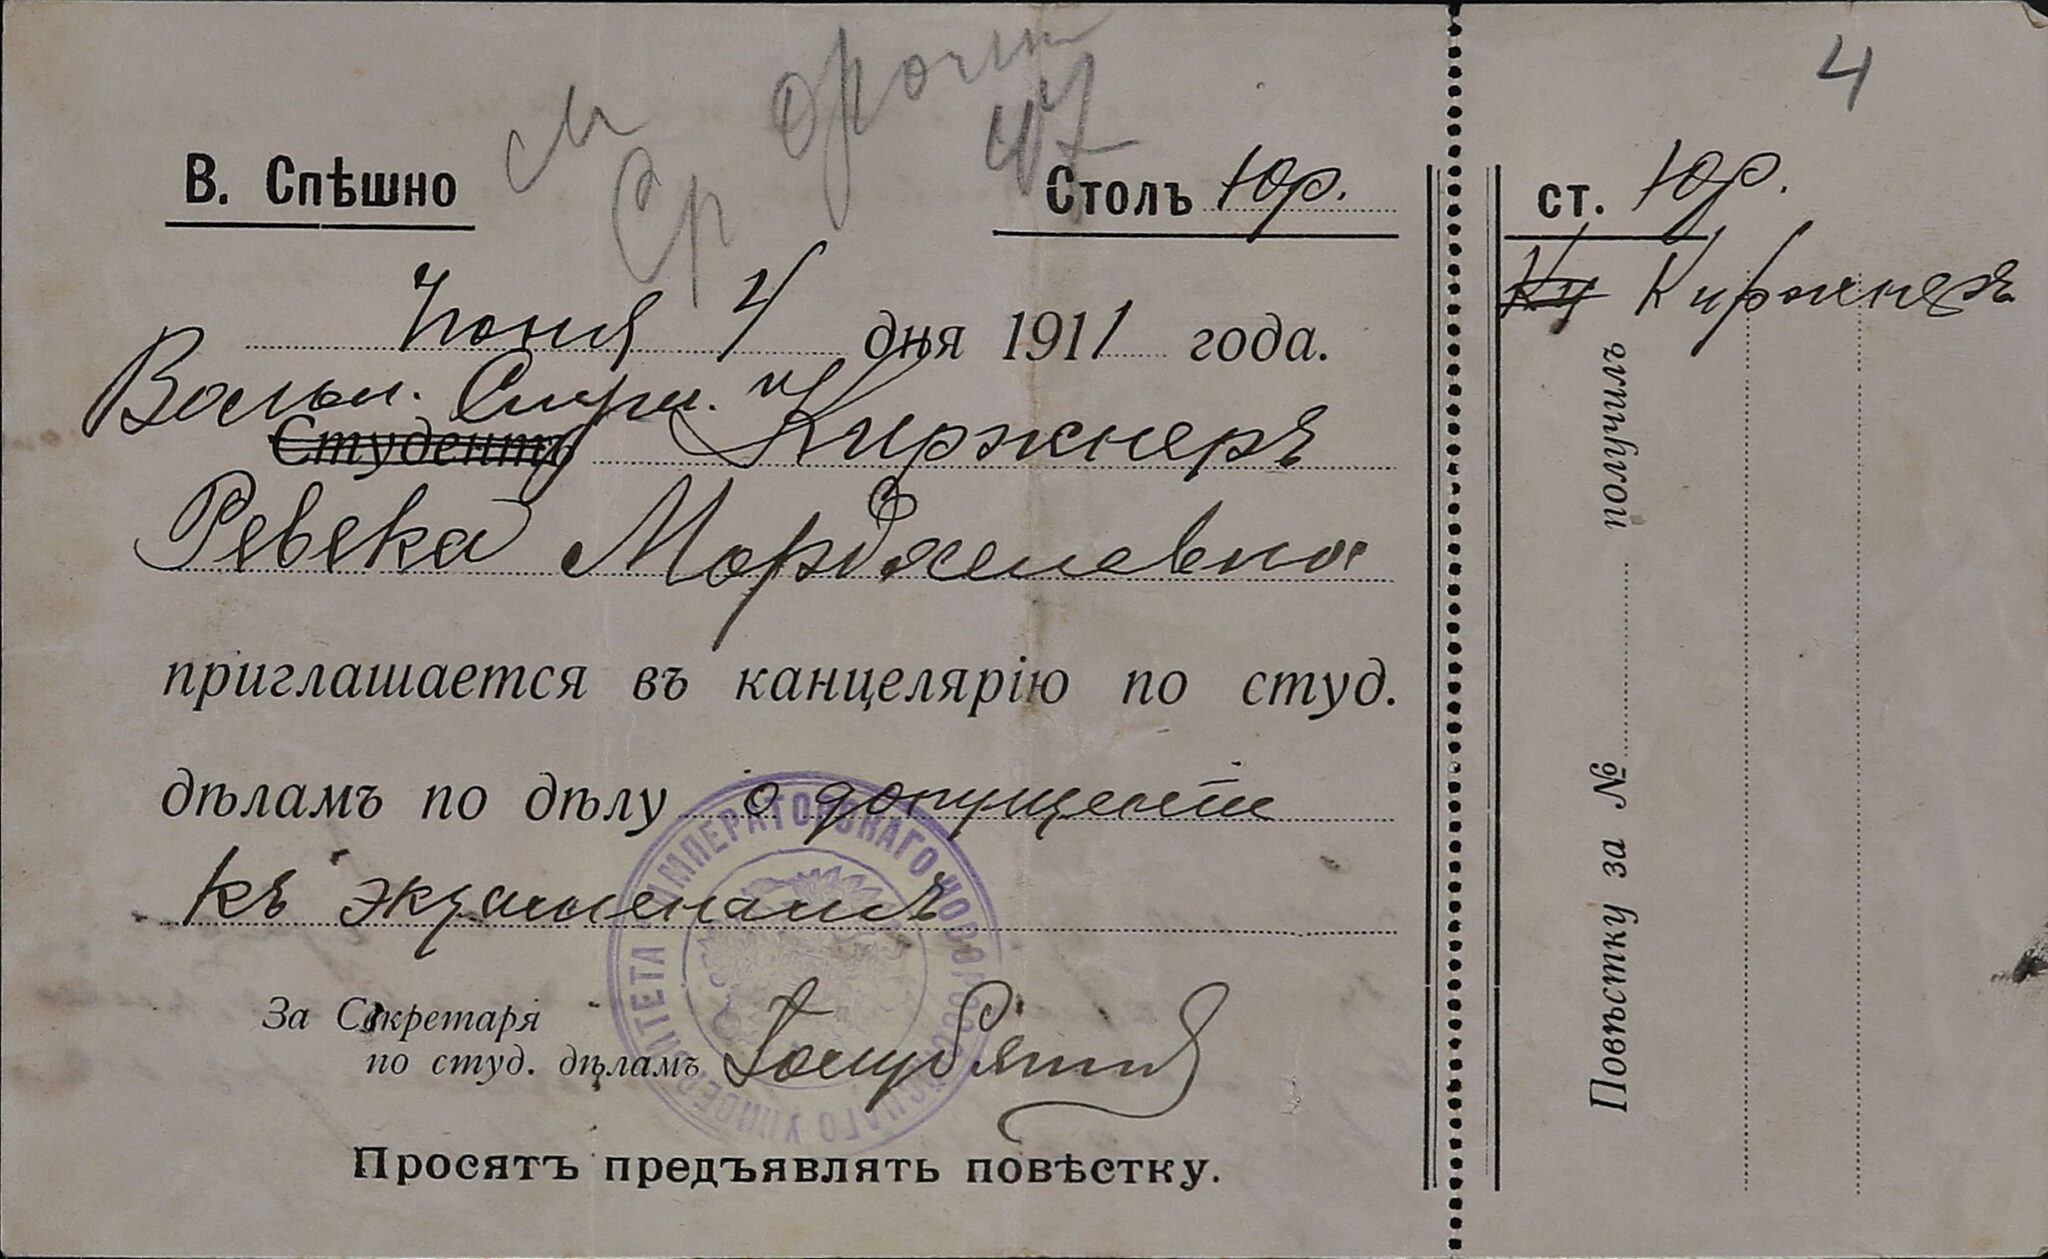 4
В. Спѣшно
Столъ Юр.
Іюня 4 дня 1911 года.
Вольн. Слуш.
Студентъ Киржнеръ
Ревека Мордхелевна
приглашается въ канцелярію по студ.
дѣламъ по дѣлу о допущеніи
къ экзаменамъ
За Секретаря
по студ. дѣламъ
Просятъ предъявлять повѣстку.
ИМПЕРАТОРСКАГО НОВОРОССІЙСКАГО УНИВЕРСИТЕТА
ст. Юр.
Киржнеръ
Повѣстку за № получилъ